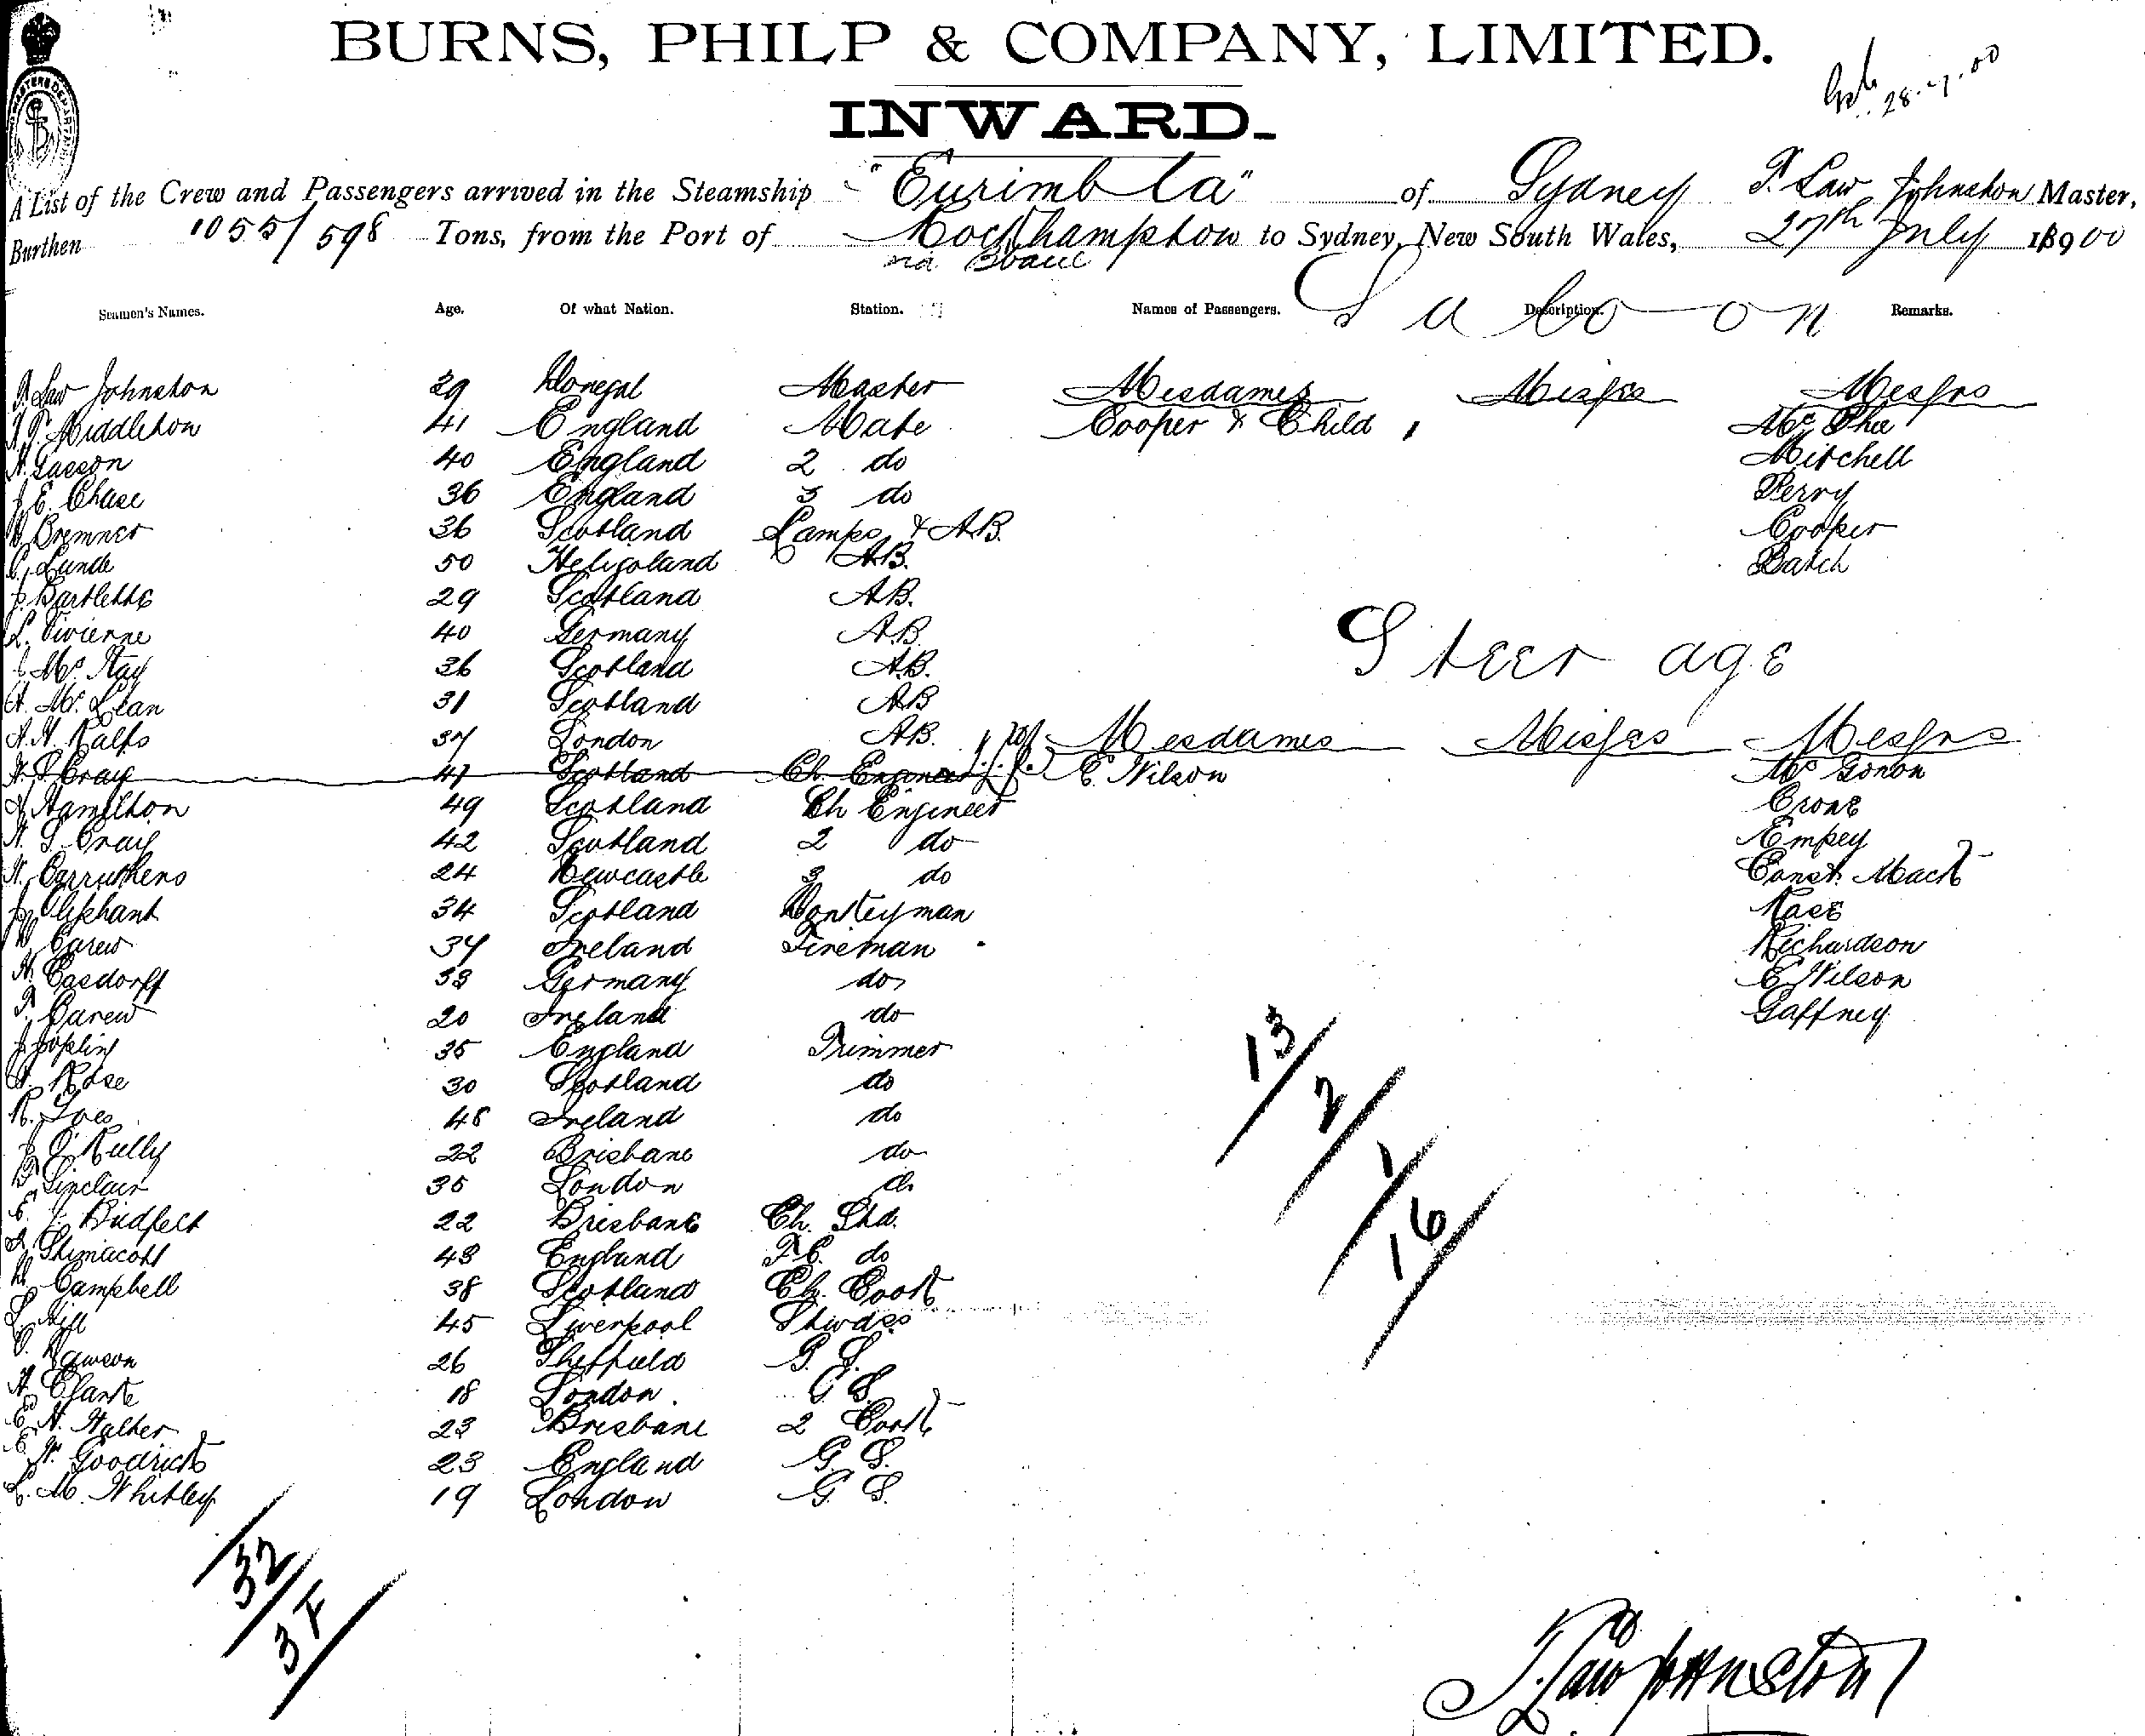 BURNS, PHILP & COMPANY, LIMITED.
INWARD.
28.7.00
A List of the Crew and Passengers arrived in the Steamship "Eurimbla" of Sydney T. Law Johnston Master,
Burthen 1055/598 Tons, from the Port of Rockhampton to Sydney, New South Wales, 27th July 1900
via
Seamen's Names. Age. Of what Nation. Station. Names of Passengers. Description. Remarks.
Saloon
T. Law Johnston 29 Donegal Master Mesdames Misses Messrs
Middleton 41 England Mate Cooper & Child 1 McPhee
40 England 2 do Mitchell
E. Chase 36 England 3 do Perry
Bremner 36 Scotland Lamps & AB. Cooper
Lunde 50 Heligoland AB. Batch
Bartlett 29 Scotland AB.
L. Vivienne 40 Germany A.B.
Steerage
Mc Kay 36 Scotland AB.
A. Mc Lean 31 Scotland AB
Ralfs 37 London AB. Mesdames Misses Messrs
Craig 47 Scotland Ch. Engineer E. Wilson
Hamilton 49 Scotland Ch Engineer Crone
S. Craig 42 Scotland 2 do Empey
Carruthers 24 Newcastle 3 do Const. Mack
Oliphant 34 Scotland Donkeyman
Carew 37 Ireland Fireman Richardson
Casdorff 33 Germany do E Wilson
Carew 20 Ireland do Gaffney
Joplin 35 England Trimmer
Rose 30 Scotland do
Ireland do
22 Brisbane do
Sinclair 35 London do
22 Brisbane Ch. Std.
Shimacott 43 England F.C. do
Campbell 38 Scotland Ch. Cook
Hill 45 Liverpool Stwdss
26 Sheffield G. S.
Clarke 18 London G S.
23 Brisbane 2 Cook
Goodrick 23 England G. S.
L. M. Whitley 19 London G. S.
13/
2/
1/
16/
32/
T. Law Johnston